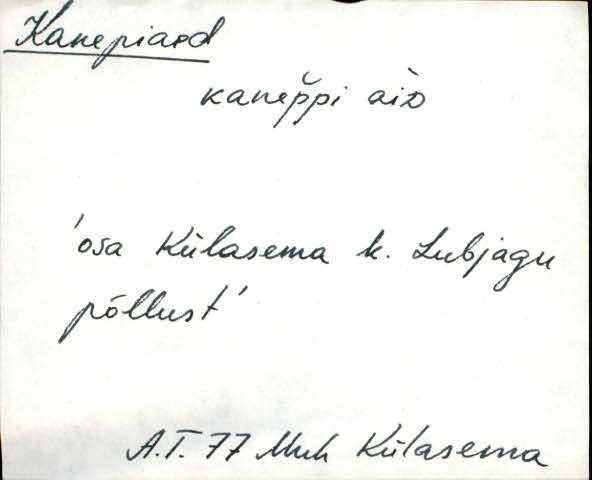 Kanepiaed
kanep̆pi àiᴅ
'osa Külasema k. Lubjagu
põllust'
A.T. 77 Muh Külasema